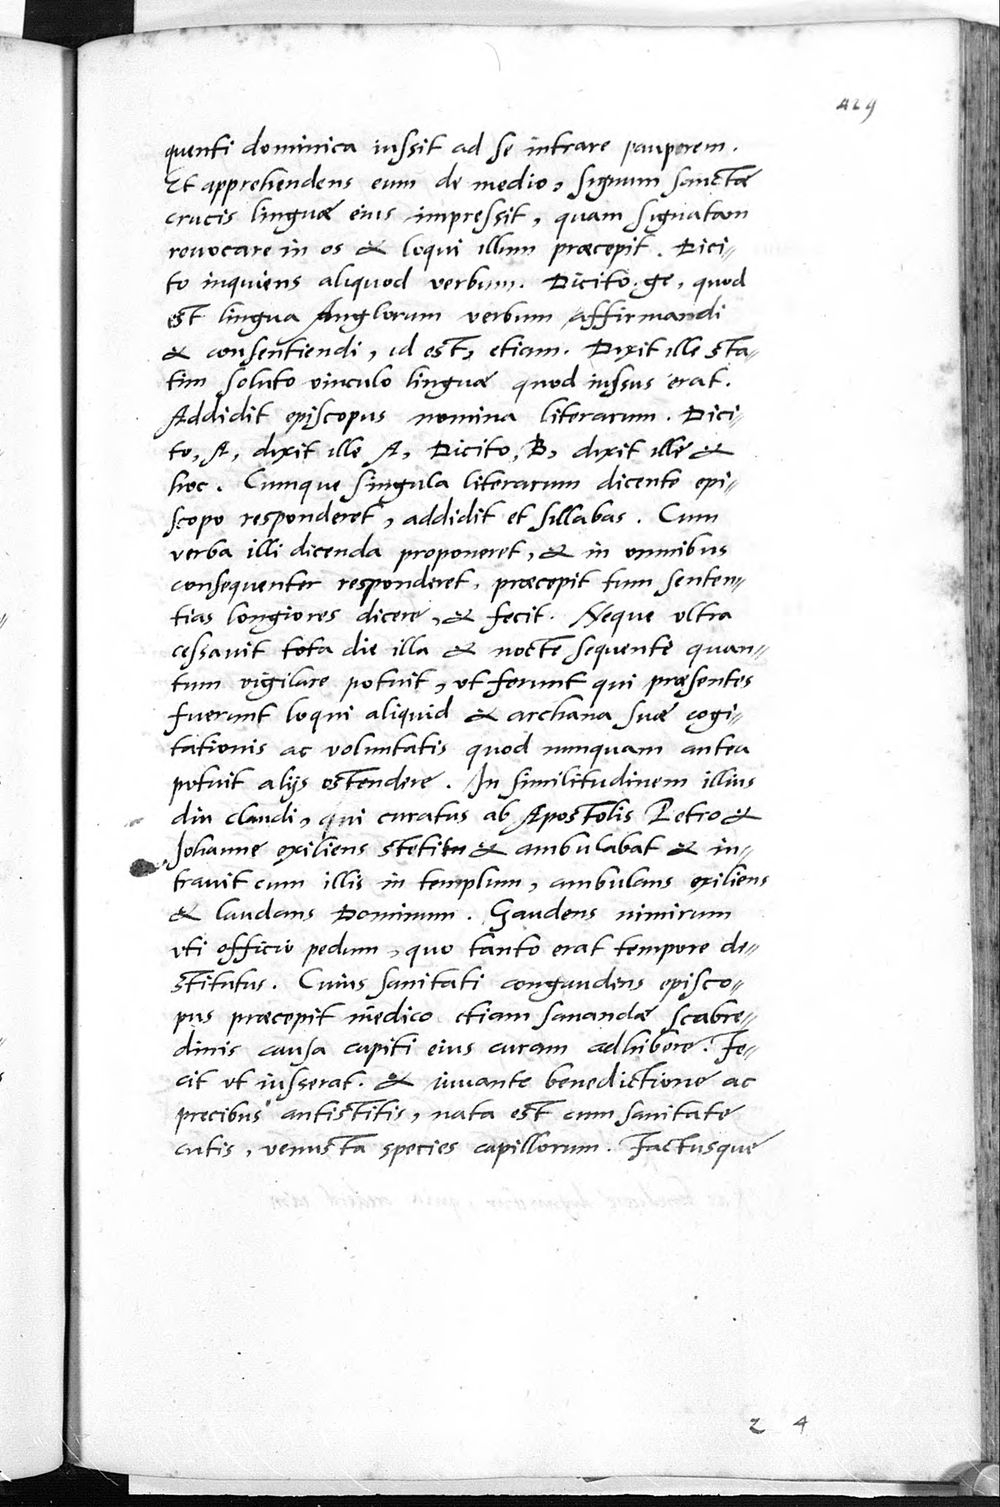 429
quenti dominica iussit ad se intrare pauperem.
Et apprehendens eum de medio, signum sanctæ
crucis linguæ eius impressit, quam signatam
reuocare in os & loqui illum præcepit. Dici-
to inquiens aliquod verbum. Dicito. ge, quod
est lingua Anglorum verbum affirmandi
& consentiendi, id est, etiam. Dixit ille sta-
tim soluto vinculo linguæ quod iussus erat.
Addidit episcopus nomina literarum. Dici-
to, A, dixit ille A, Dicito, B, dixit ille &
hoc. Cumque singula literarum dicente epi-
scopo responderet, addidit et sillabas. Cum
verba illi dicenda proponeret, & in omnibus
consequenter responderet, præcepit tum senten-
tias longiores dicere, & fecit. Neque ultra
cessauit tota die illa & nocte sequente quan-
tum vigilare potuit, ut ferunt qui præsentes
fuerunt loqui aliquid & archana suæ cogi-
tationis ac voluntatis quod nunquam antea
potuit alijs ostendere. In similitudinem illius
diu claudi, qui curatus ab Apostolis Petro &
Johanne exiliens stetit & ambulabat & in-
trauit cum illis in templum, ambulans exiliens
& laudans Dominum. Gaudens nimirum
uti officio pedum, quo tanto erat tempore de-
stitutus. Cuius sanitati congaudens episco-
pus præcepit medico etiam sanandæ scabre-
dinis causa capiti eius curam adhibere. Fe-
cit ut iusserat. & iuuante benedictione ac
precibus antistitis, nata est cum sanitate
cutis, venusta species capillorum. Factusque
z 4